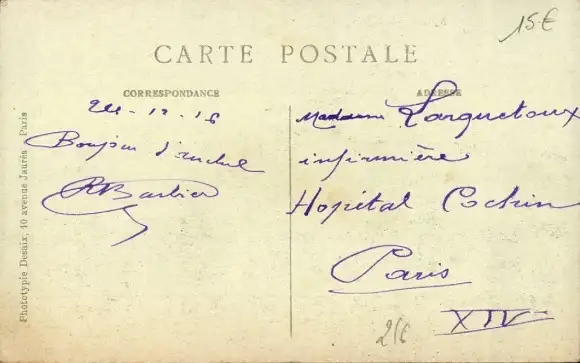 15€
CARTE POSTALE
CORRESPONDANCE
24-12-16
Bonjour
R Barbier
ADRESSE
Madame Larguetoux
infirmière
Hopital Cochin
Paris
XIV
216
Phototypie Desaix, 40 avenue Jaurès Paris